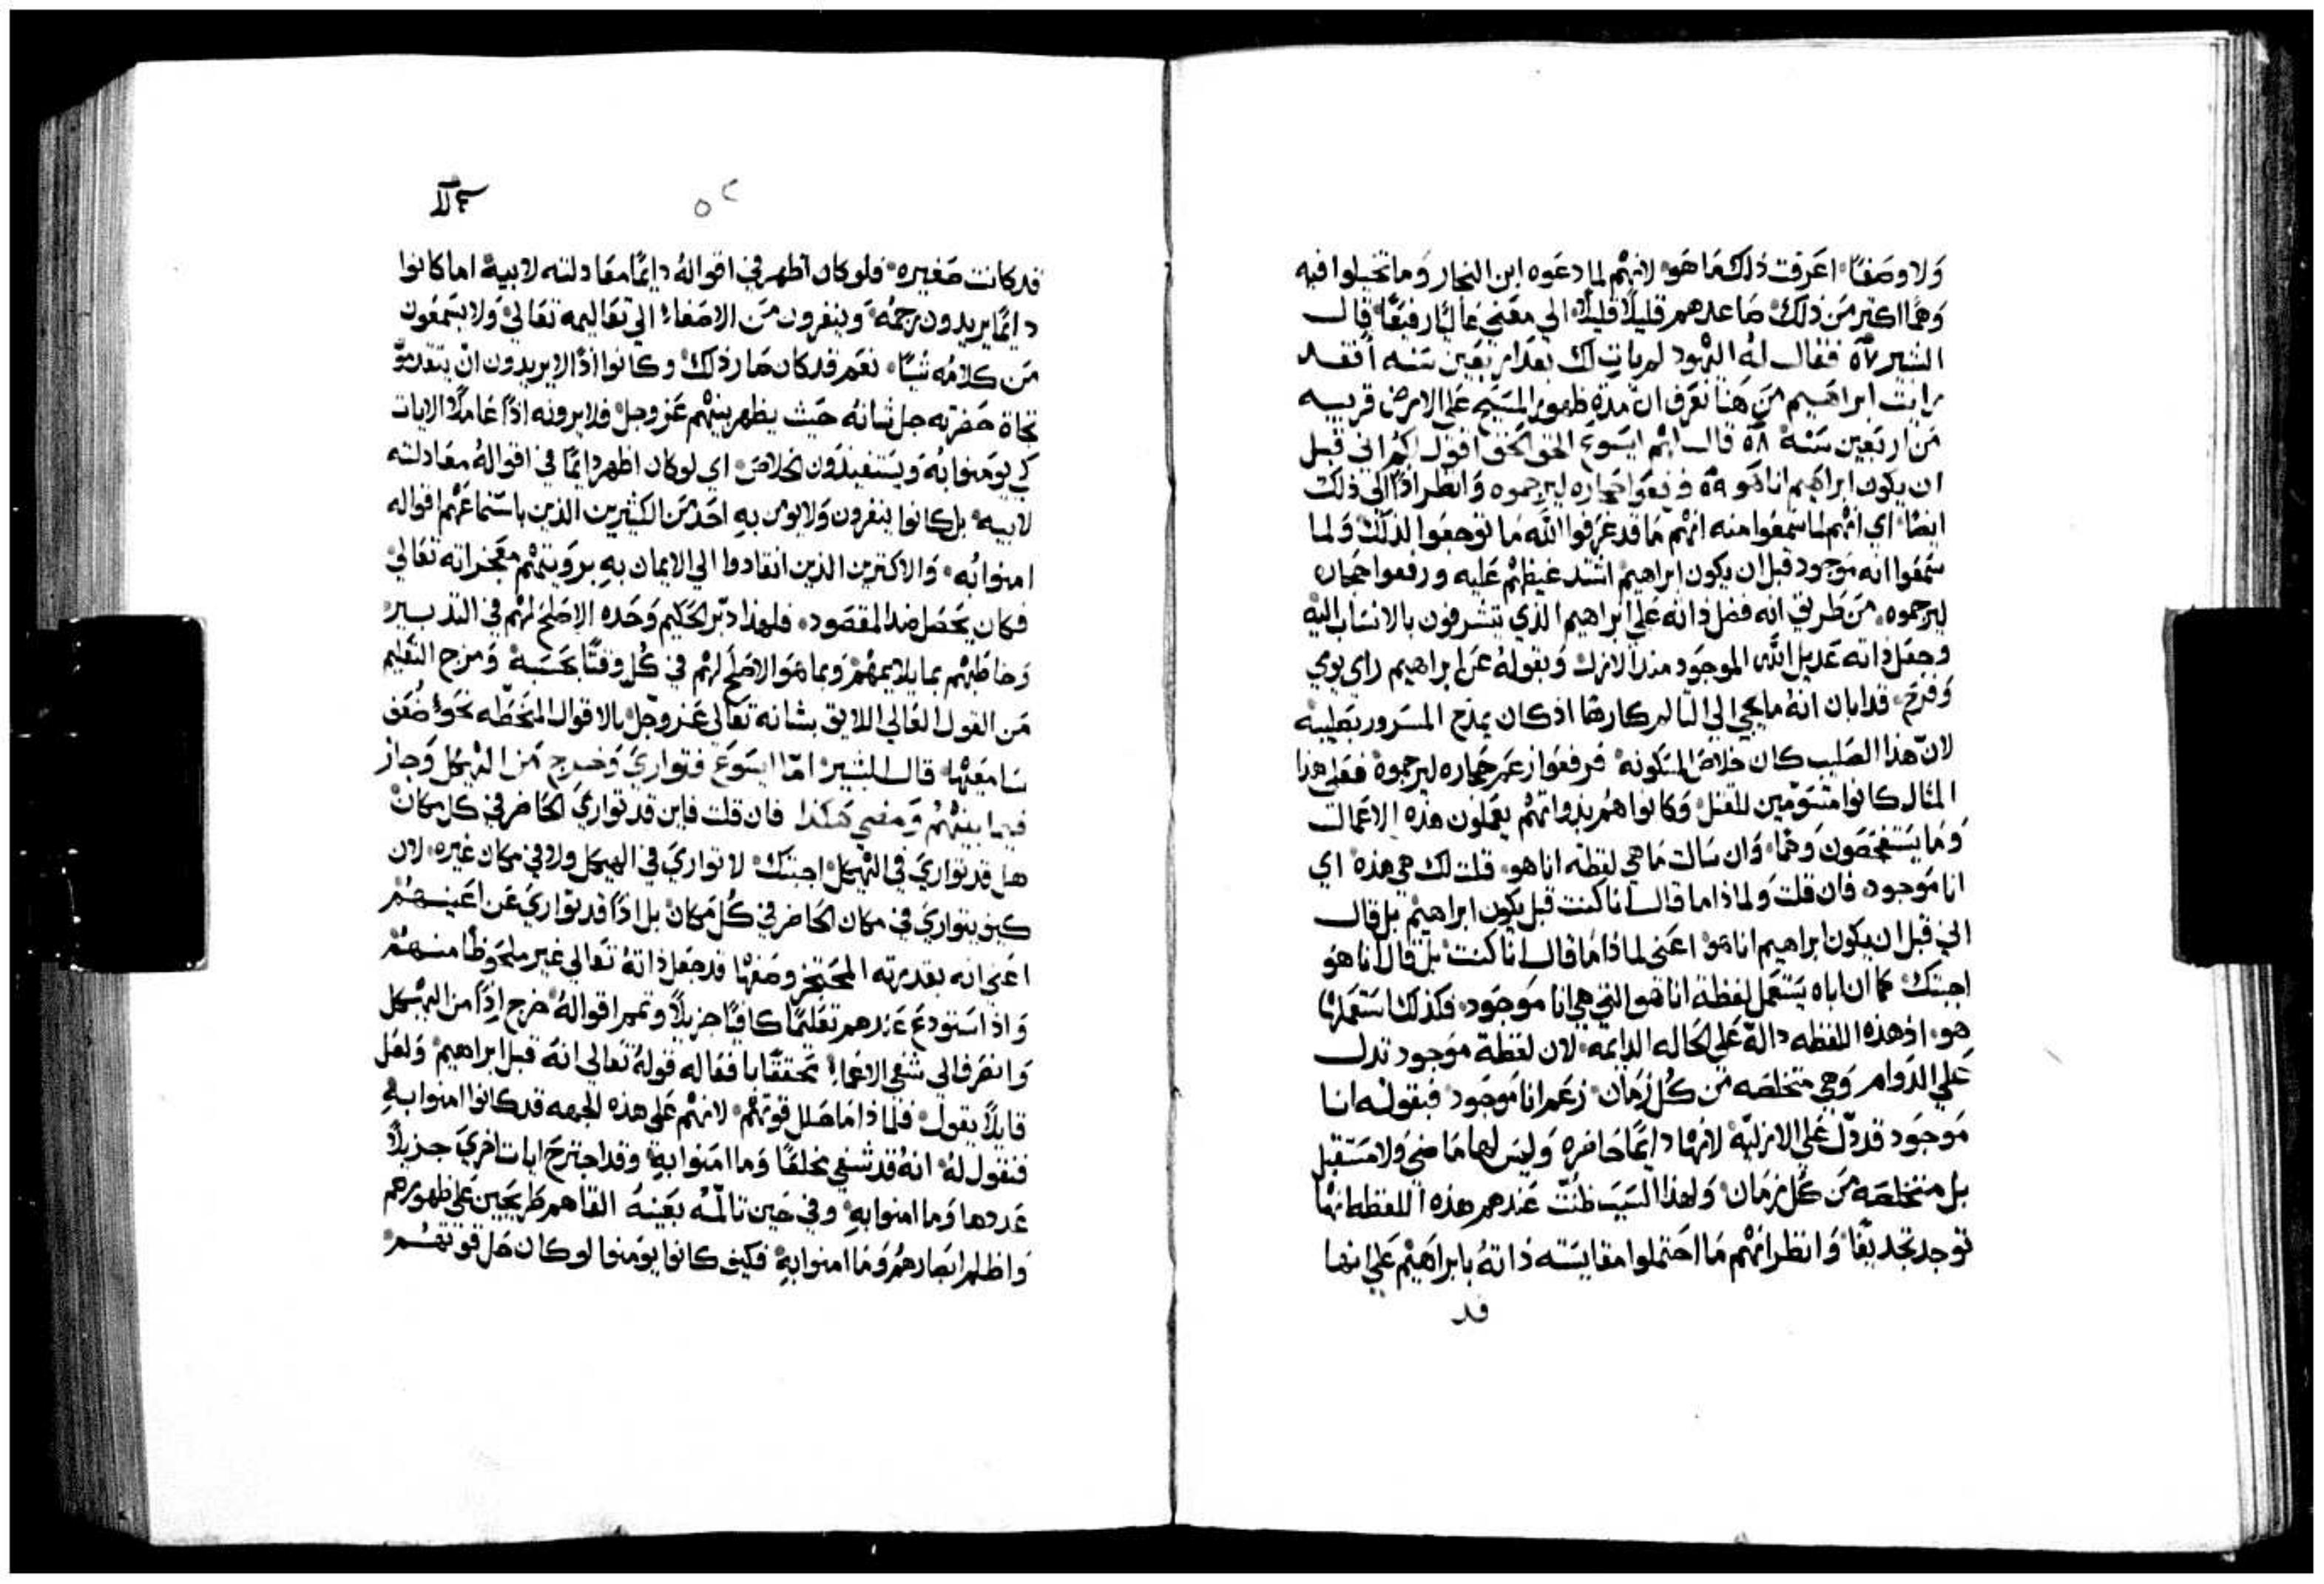 ولا وصفًا، اعرفت ذلك ما هو، لانهم لما دعوه ابن النجار وما تخيلوا فيه
وهمًا اكثر من ذلك، صاعدهم قليلاً قليلاً، الي معني عاليًا رفيعًا، قال
البشير ٥٧ فقال له اليهود لم يات لك بعد اربعين سنه افقد
رايت ابراهيم من هنا نعرف ان مدة ظهور المسيح علي الارض قريبه
من اربعين سنة ٥٨ قال لهم ايسوع الحق الحق اقول لكم اني قبل
ان يكون ابراهيم انا هو ٥٩ فرفعوا حجاره ليرجموه وانظر اذًا الي ذلك
ايضًا، اي انهم لما سمعوا منه انهم ما قد عرفوا الله ما توجعوا لذلك ولما
سمعوا انه موجود قبل ان يكون ابراهيم اشتد غيظهم عليه ورفعوا حجاره
ليرجموه، من طريق انه فضل ذاته علي ابراهيم الذي يتشرفون بالانتساب اليه
وجعل ذاته عديل الله الموجود منذ الازل وبقوله عن ابراهيم راي يومي
وفرح، قد ابان انه ما يجي الي التالم كارهًا اذ كان يمدح المسرور بصليبه
لان هذا الصليب كان خلاص المسكونه، فرفعوا زعم حجاره ليرجموه فعلي هذا
المثال كانوا متسومين للقتل، وكانوا هم بذواتهم يعملون هذه الاعمال
وما يستفحصون وهمًا، وان سالت ما هي لفظة انا هو، قلت لك هي هذه اي
انا موجود، فان قلت ولماذا ما قال انا كنت قبل يكون ابراهيم بل قال
اني قبل ان يكون ابراهيم انا هو، اعني لماذا ما قال انا كنت، بل قال انا هو
اجبتك، كما ان اباه يستعمل لفظة انا هو التي هي انا موجود، فكذلك استعملها
هو، اذ هذه اللفظه دالة علي الحاله الدايمه، لان لفظة موجود تدل
علي الدوام وهي متخلصه من كل زمان، زعم انا موجود، فبقوله انا
موجود قد دل علي الازليّة لانها دايمًا حاضره وليس لها ماضي ولا مستقبل
بل متخلصه من كل زمان، ولهذا السبب ظنت عندهم هذه اللفظه انها
توجد تجديفًا، وانظر انهم ما احتملوا مقايسته ذاته بابراهيم علي انها
قد
قد كانت صغيره، فلو كان اظهر في اقواله دايمًا معادلته لابيه، اما كانوا
دايمًا يريدون رجمه، وينفرون من الاصغاء الي تعاليمه تعالي، ولا يسمعون
من كلامه شيًا، نعم قد كان صار ذلك، وكانوا اذًا لا يريدون ان يتقدموا
تجاة حضرته جل شانه حيث يظهر بينهم عز وجل، فلا يرونه اذًا عاملاً الايات
كي يومنوا به ويستفيدون الخلاص، اي لو كان اظهر دايمًا في اقواله معادلته
لابيه، بل كانوا ينفرون ولا يومن به احد من الكثيرين الذين باستماعهم اقواله
امنوا به، والاكثرين الذين انقادوا الي الايمان به برويتهم معجزاته تعالي،
فكان يحصل ضد المقصود، فلهذا دبر الحكيم وحده الاصلح لهم في التدبير
وخاطبهم بما يلايمهم، وبما هو الاصلح لهم في كل وقتًا بحسبه، ومزج التعليم
من القول العالي اللايق بشانه تعالي عز وجل بالاقوال المنحطه نحو ضعف
سامعيها، قال البشير اما ايسوع فتواري وخرج من الهيكل وجاز
فيما بينهم ومضي هكذا فان قلت فاين قد تواري الحاضر في كل مكان
هل قد تواري في الهيكل، اجبتك، لا تواري في الهيكل ولا في مكان غيره، لان
كيف يتواري في مكان الحاضر في كل مكان، بل اذًا قد تواري عن اعينهم
اعني انه بقدرته المحتجز وصفها قد جعل ذاته تعالي غير ملحوظًا منهم
واذ استودع عندهم تعليمًا كافيًا جزيلاً وتمم اقواله، خرج اذًا من الهيكل
وانصرف الي شفي الاعماء، محققًا بافعاله قوله تعالي انه قبل ابراهيم، ولعل
قايلاً يقول، فلماذا ما حلل قوتهم، لانهم علي هذه الجهه قد كانوا امنوا به
فنقول له، انه قد شفي مخلعًا وما امنوا به، وقد اجترح ايات اخري جزيلاً
عددها وما امنوا به، وفي حين تالمه بعينه القاهم طريحين علي ظهورهم
واظلم ابصارهم وما امنوا به، فكيف كانوا يومنوا لو كان حل قوتهم،